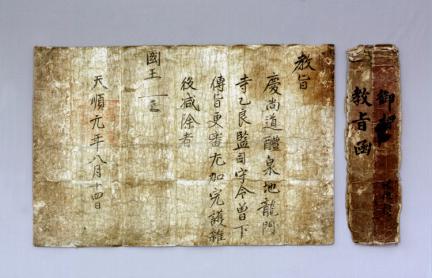 教旨
慶尚道醴泉地龍門
寺乙良監司守令曾下
傳旨更審尤加完護雜
役減除者
國王
天順元年八月十四日
御
教旨函